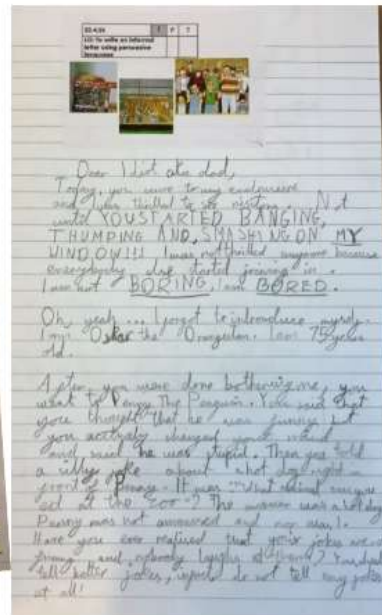 22.4.24 I P T
LO: To write an informal
letter using persuasive
language
Dear Idiot aka dad,
Today, you came to my enclosure
and I was thrilled to see visitors. Not
until YOU STARTED BANGING,
THUMPING AND, SMASHING ON MY
WINDOW!!! I was not thrilled anymore because
everybody else started joining in.
I am not BORING, I am BORED.
Oh, yeah... I forgot to introduce myself.
I'm Oskar the Orangutan. I am 75 years
old.
After, you were done bothering me, you
went to Penny The Penguin. You said that
you thought that he was funny but
you actualy changed your mind
and said he was stupid. Then you told
a silly joke about a hot dog right in
front of Penny. It was "What animal can you
eat at the zoo"? The answer was a hot dog
Penny was not amused and nor was I.
Have you ever realised that your jokes are not
funny and nobody laughs at them?
tell better jokes, do not tell any jokes
at all!